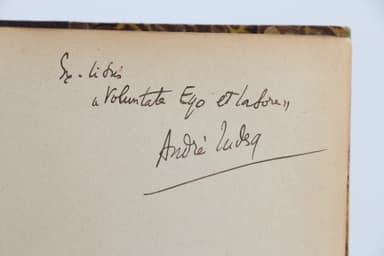 Ex-libris
"Voluntate Ego et labore"
André